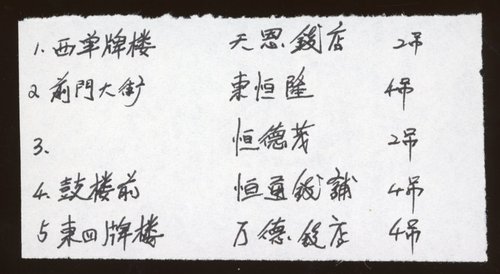 1. 西单牌楼 天恩钱店 2吊
2 前門大街 東恒隆 4吊
3. 恒德茂 2吊
4. 鼓楼前 恒通钱舖 4吊
5 東四牌楼 万德钱店 4吊